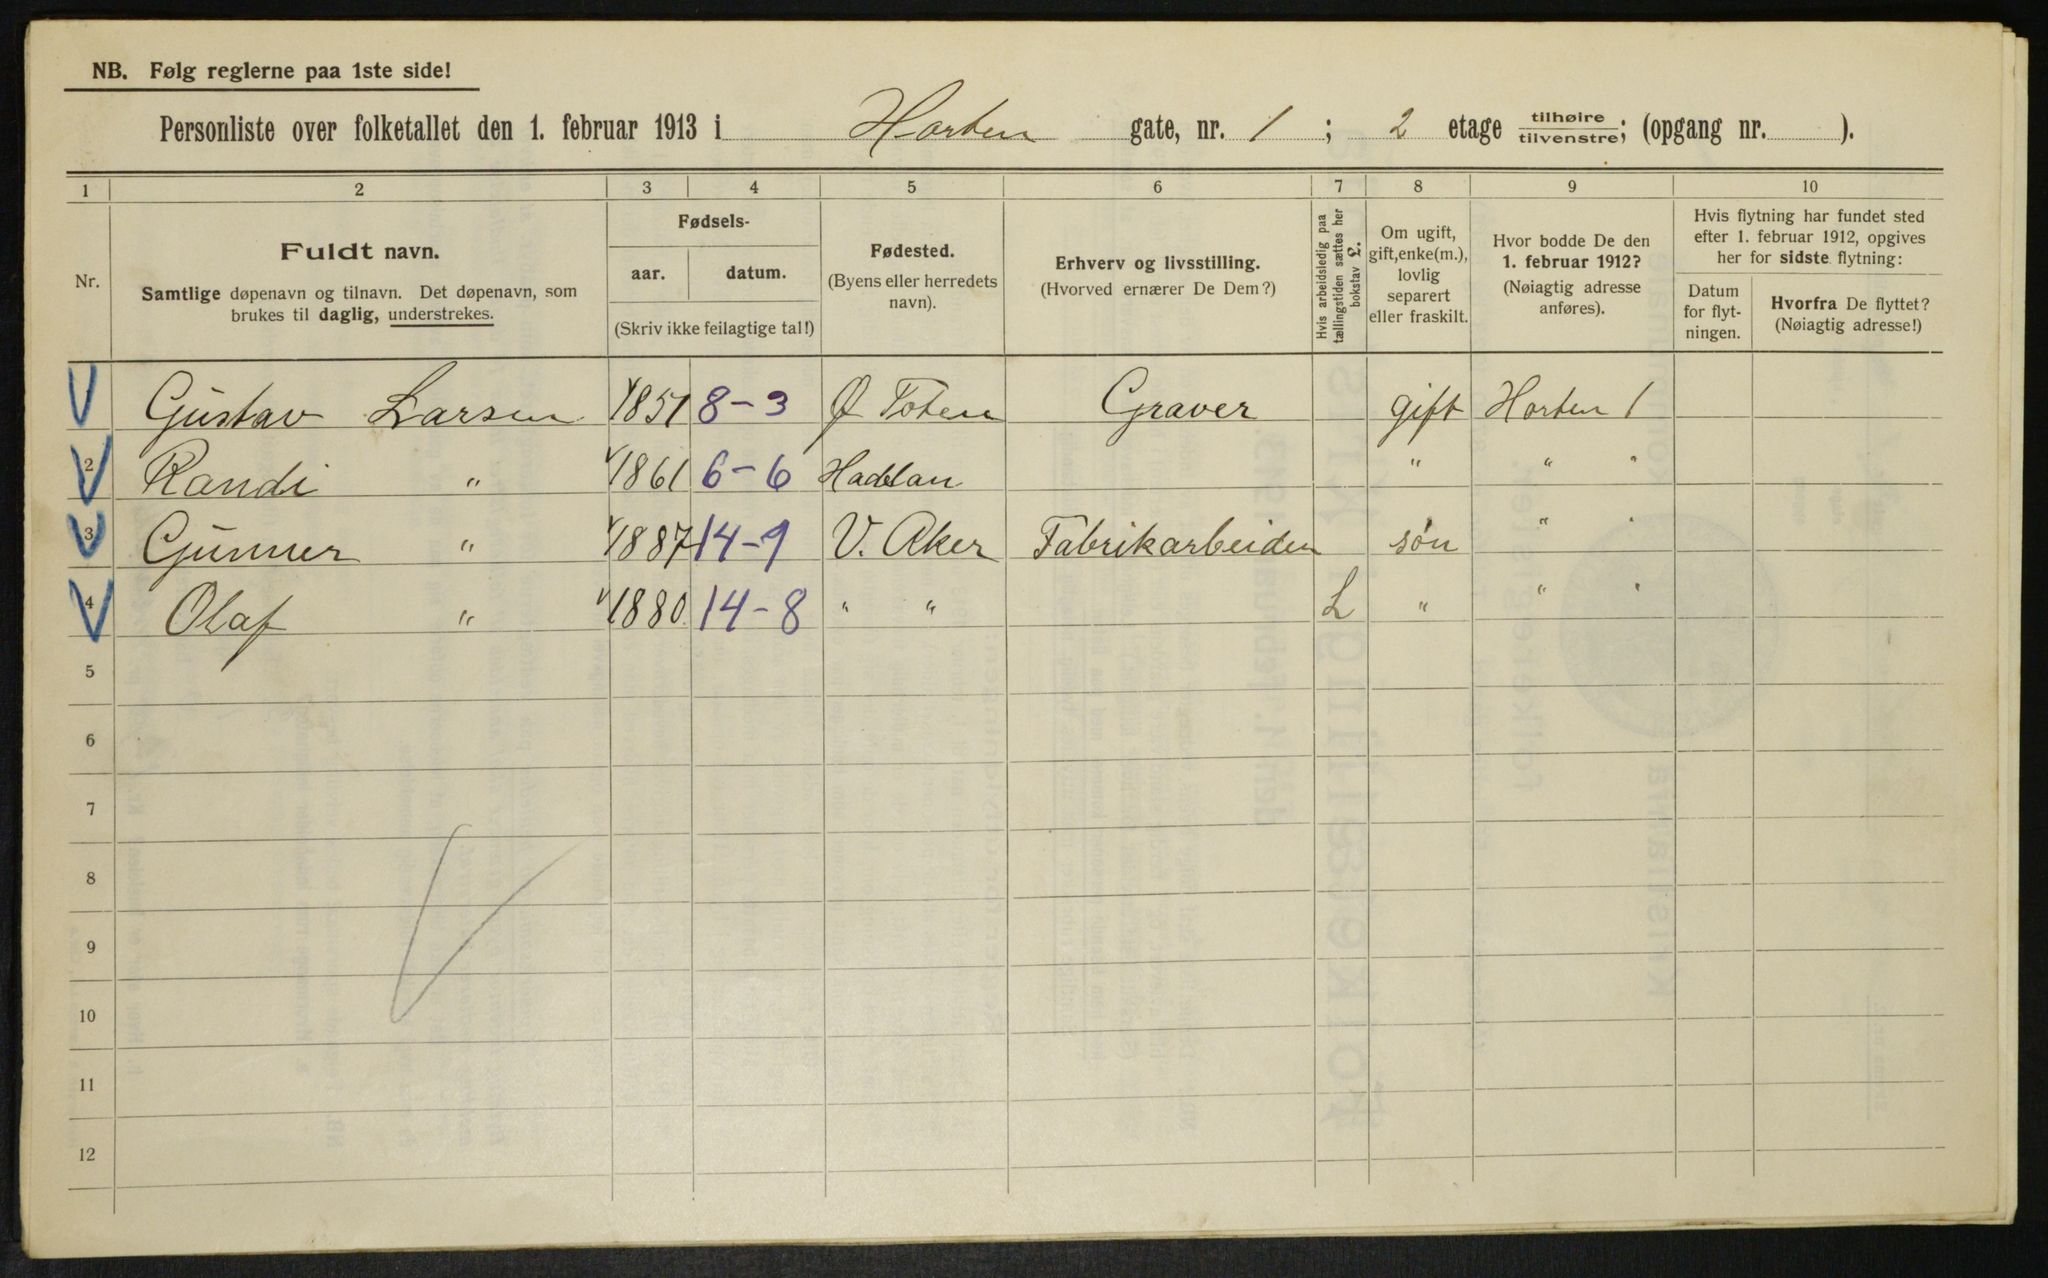 NB. Følg reglerne paa 1ste side!
Personliste over folketallet den 1. februar 1913 i Horten gate, nr. 1 ; 2 etage tilhøire/tilvenstre; (opgang nr. ).
1 2 3 4 5 6 7 8 9 10
Nr.
Fuldt navn.
Samtlige døpenavn og tilnavn. Det døpenavn, som
brukes til daglig, understrekes.
Fødsels-
aar. datum.
(Skriv ikke feilagtige tal!)
Fødested.
(Byens eller herredets
navn).
Erhverv og livsstilling.
(Hvorved ernærer De Dem?)
Hvis arbeidsledig paa
tællingstiden sættes her
bokstav L.
Om ugift,
gift, enke(m.),
lovlig
separert
eller fraskilt.
Hvor bodde De den
1. februar 1912?
(Nøiagtig adresse
anføres).
Hvis flytning har fundet sted
efter 1. februar 1912, opgives
her for sidste flytning:
Datum
for flyt-
ningen.
Hvorfra De flyttet?
(Nøiagtig adresse!)
Gustav Larsen 1851 8-3 Ø Toten Graver gift Horten 1
2 Randi " 1861 6-6 Hadelan " " "
3 Gunner " 1887 14-9 V. Aker Fabrikarbeider søn " "
4 Olaf " 1880 14-8 " " L " " "
5
6
7
8
9
10
11
12